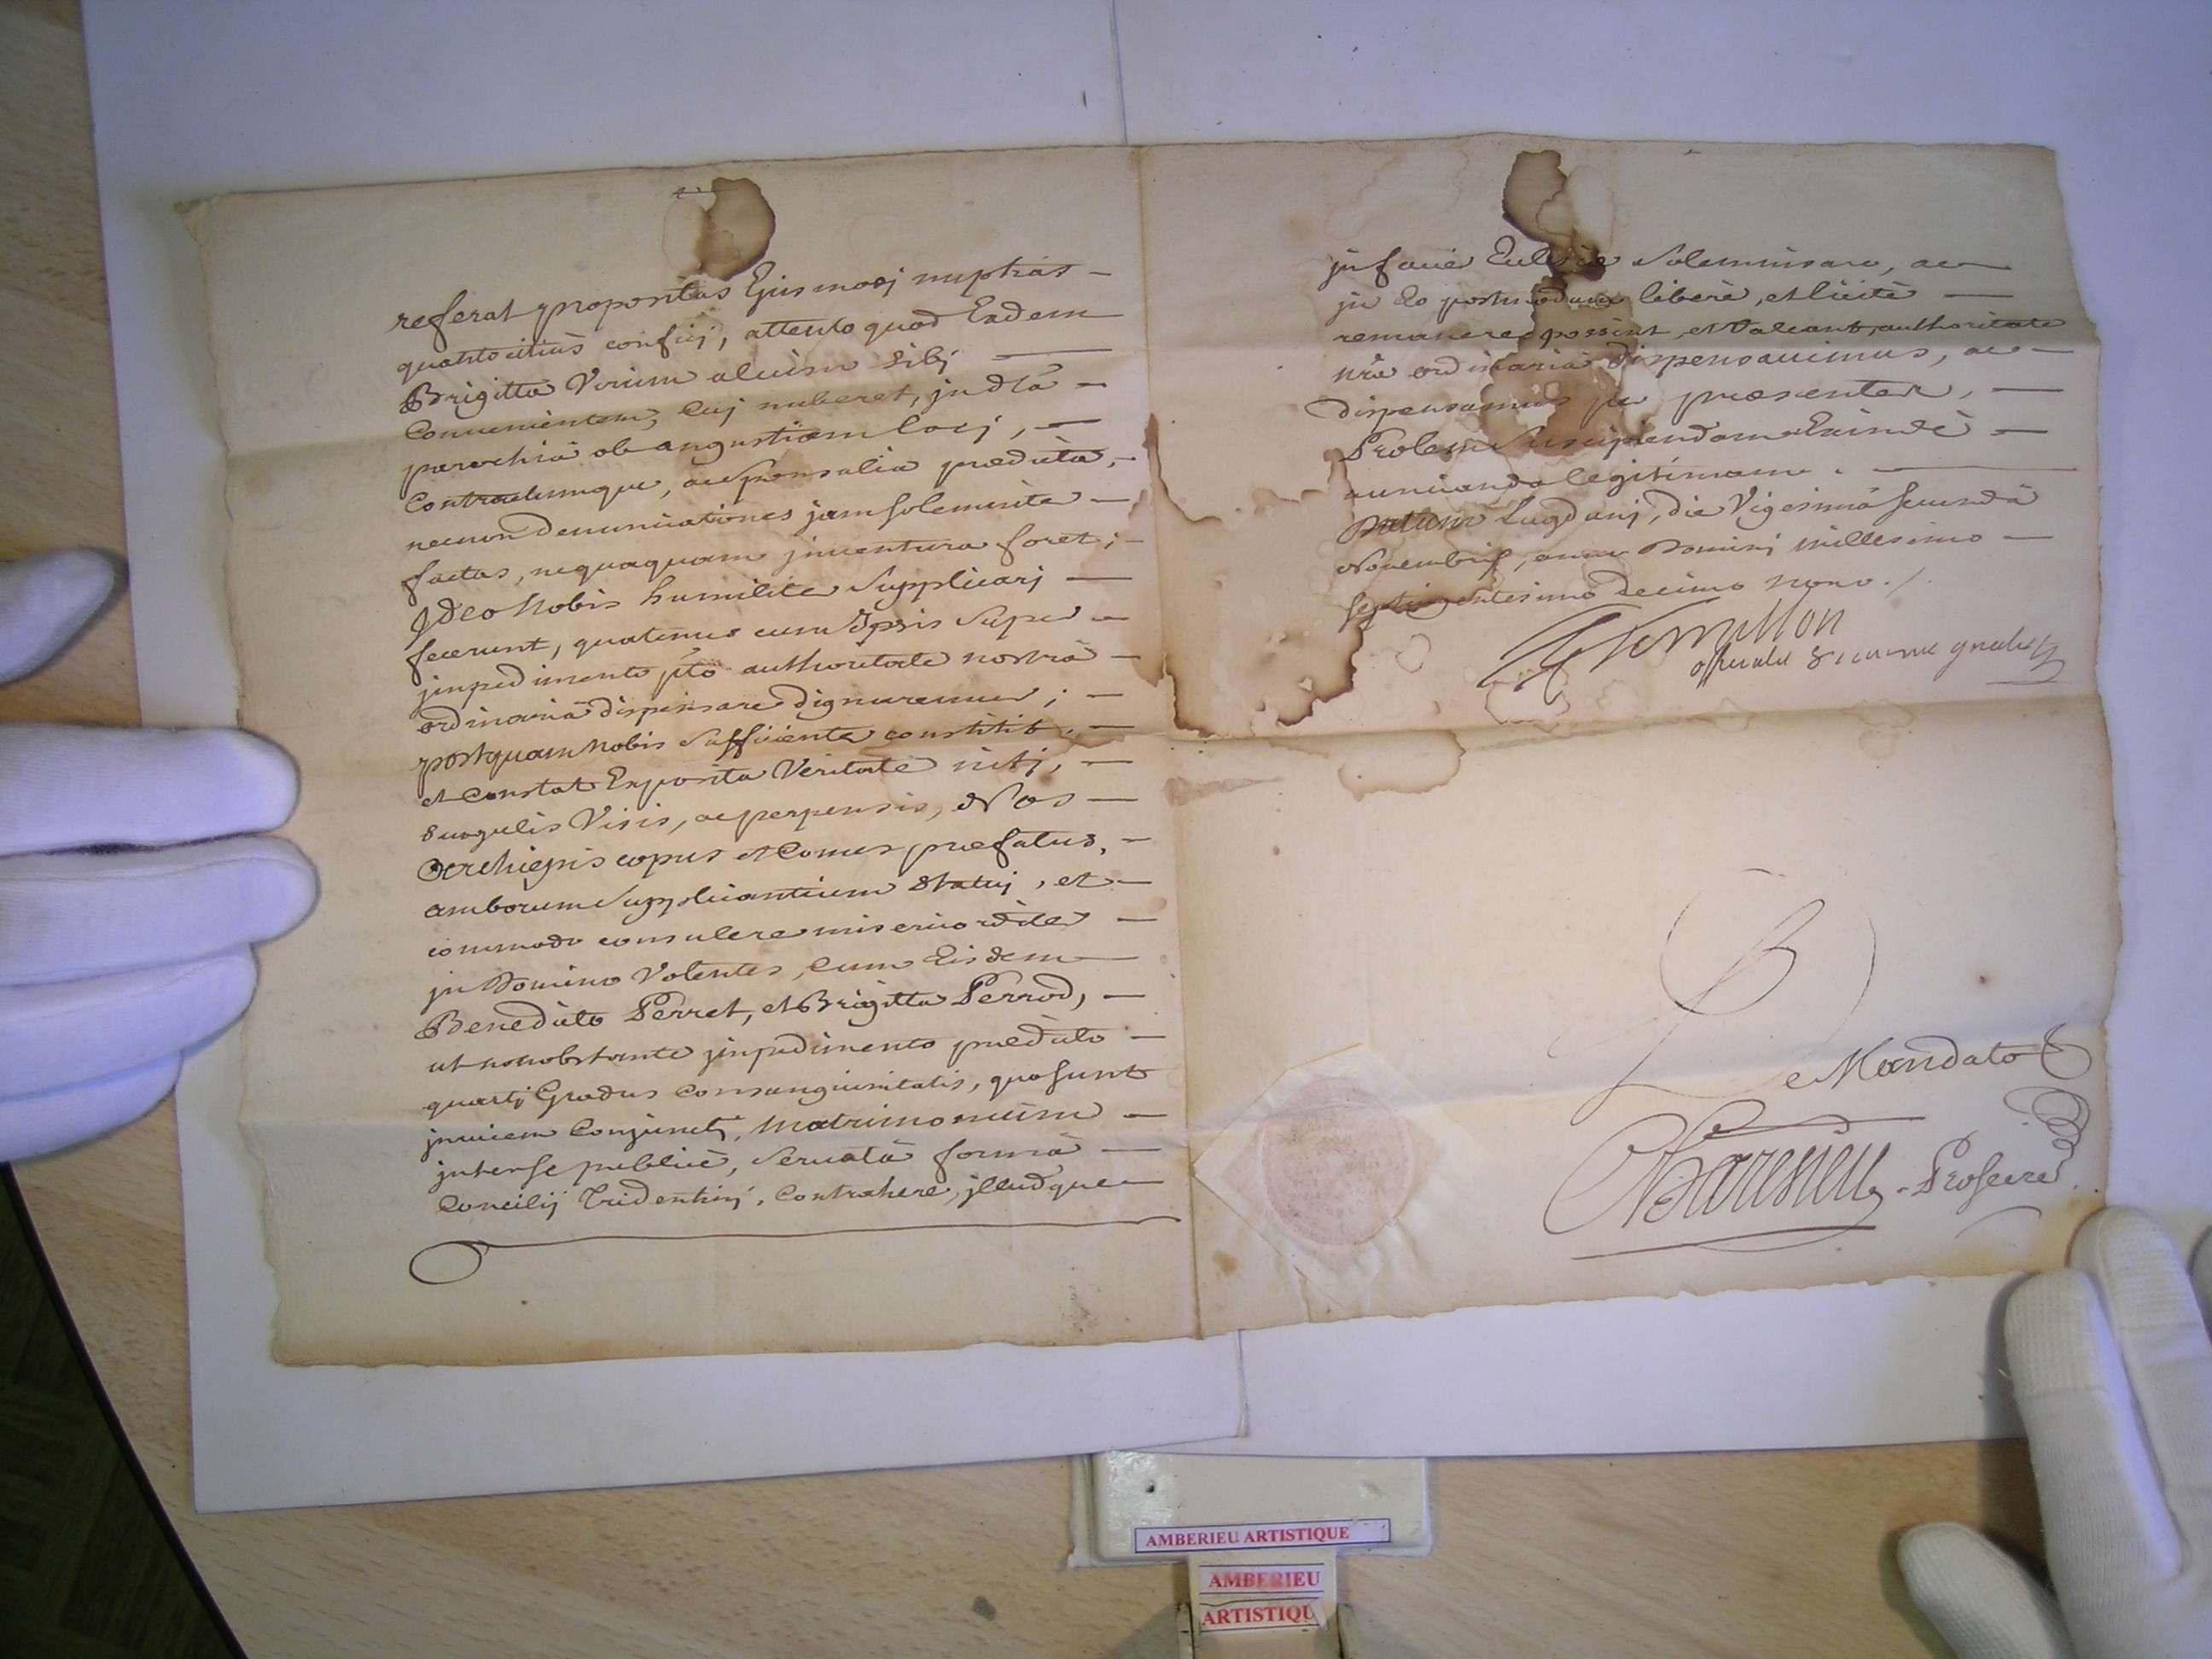 referat propositas Ejusmodj nuptias
quantocitius conficj, attento quod Eadem
Brigitta Virum alium sibj
Convenientem, Cuj nuberet, jn dtâ
parochiâ ob angustiam locj,
Contractumque, ac sponsalia prædicta,
necnon denunciationes jam solemniter
factas, nequaquam jnventura foret;
Jdeo nobis humiliter supplicarj
fecerunt, quatenus cum Jpsis super
jmpedimento pto authoritate nostrâ
ordinariâ dispensare dignaremur;
postquam nobis sufficienter constitit,
et Constat Exposita Veritate nitj,
singulis Visis, ac perpensis, Nos
Archiepiscopus et Comes præfatus,
amborum supplicantium statuj, et
commodo consulere misericorditer
jn Domino Volentes, Cum Eisdem
Benedicto Perret, et Brigitta Perrod,
ut nonobstante jmpedimento prædicto
quartj Gradus Consanguinitatis, quo sunt
jnvicem Conjunctj, Matrimonium
jnter se publicè, servatâ formâ
Concilij Tridentinj, Contrahere, jlludque
jn facie Ecclesiæ solemnisare, ac
jn Eo postmodum liberè, et licitè
remanere possint, et Valeant, authoritate
nrâ ordinariâ dispensavimus, ac
dispensamus per præsentes,
Prolem suscipiendam Exindè
nunciando legitimam.
Datum Lugdunj, die Vigesimâ secundâ
Novembris, anno Dominj millesimo
septingentesimo decimo nono./.
De Mandato
Proseccre
AMBERIEU ARTISTIQUE
AMBERIEU
ARTISTIQU